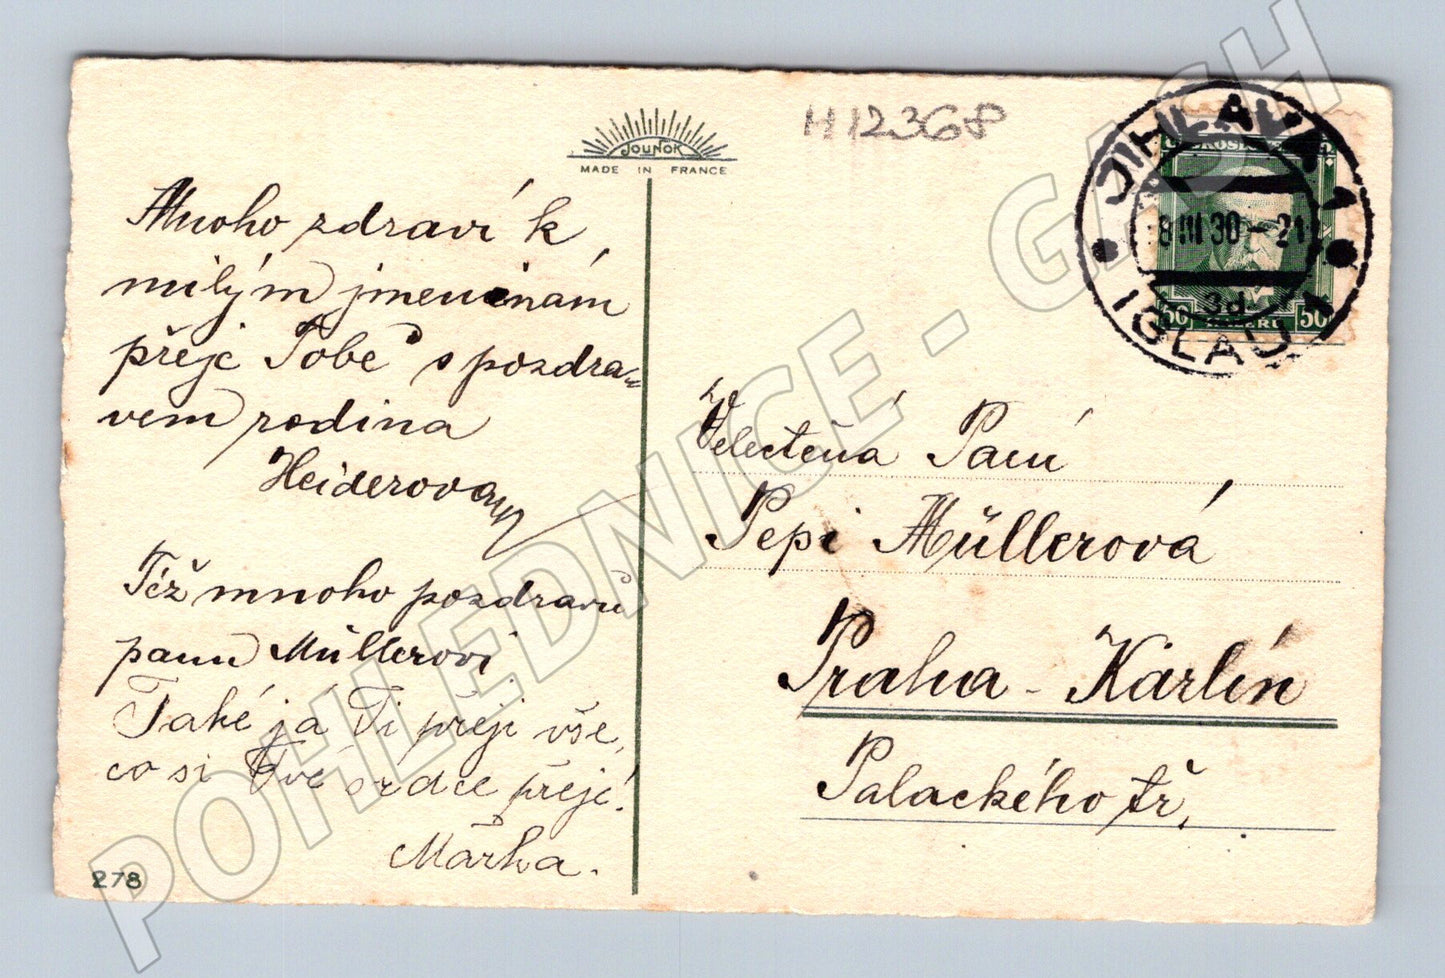 JOUNOK
MADE IN FRANCE
H12368
JIHLAVA 1
8 III 30 - 21
3d
IGLAU 1
50 50
Mnoho zdraví k
milým jmeninám
přeje Tobě s pozdra-
vem rodina
Heiderova
Též mnoho pozdravů
panu Müllerovi
Také já Ti přeji vše,
co si Tvé srdce přeje!
Mařka.
278
Velectěná Paní
Pepi Müllerová
Praha - Karlín
Palackého tř.
POHLEDNICE - GASH